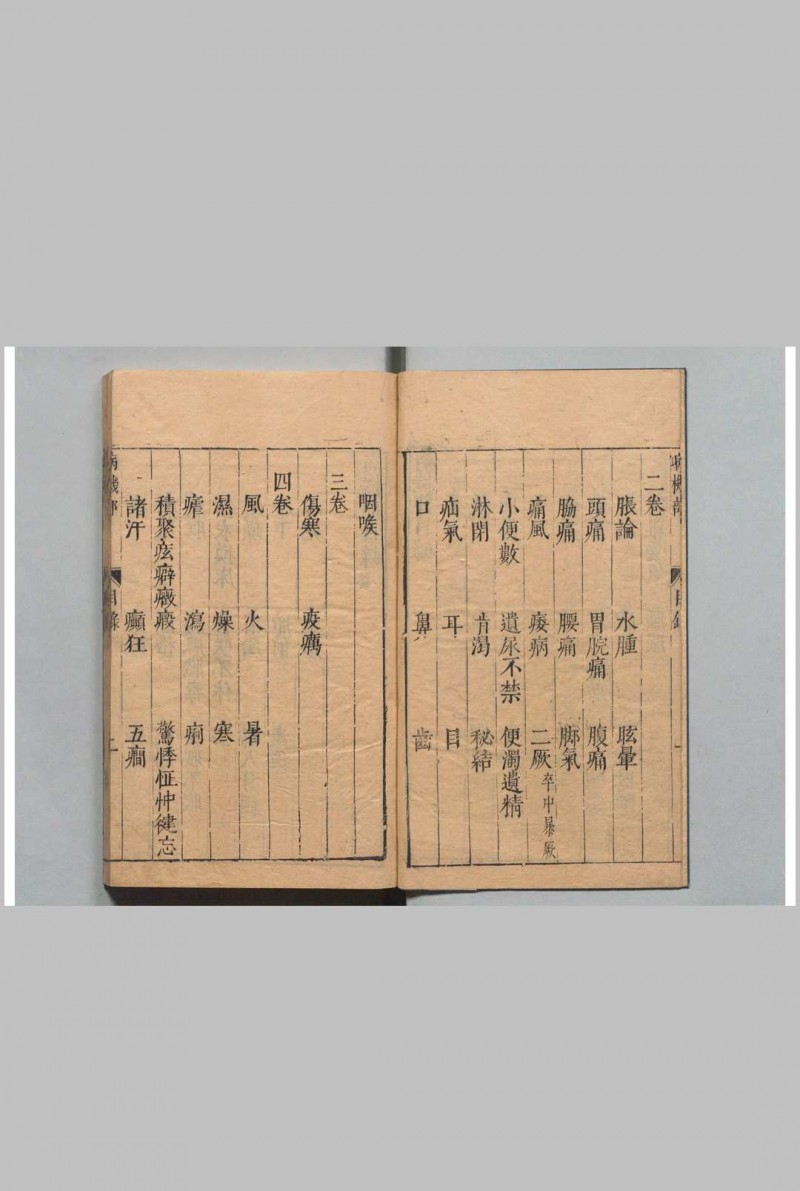 病機部 目錄 一
二卷
脹論 水腫 眩暈
頭痛 胃脘痛 腹痛
脇痛 腰痛 脚氣
痛風 痿病 二厥 卒中暴厥
小便數 遺尿不禁 便濁遺精
淋閉 肯渴 秘結
疝氣 耳 目
口 鼻 齒
咽喉
三卷
傷寒 疫癘
四卷
風 火 暑
濕 燥 寒
瘧 瀉 痢
積聚痃癖癥瘕 驚悸怔忡健忘
諸汗 癲狂 五癎
病機部 目錄 二